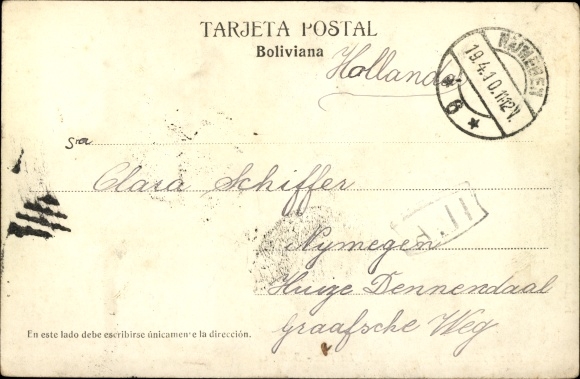 TARJETA POSTAL
Boliviana
Holland
NIJMEGEN
19.4.10.11-12V.
* 6 *
Sra
Clara Schiffer
Nymegen
Huize Dennendaal
Graafsche Weg
En este lado debe escribirse únicamen e la dirección.